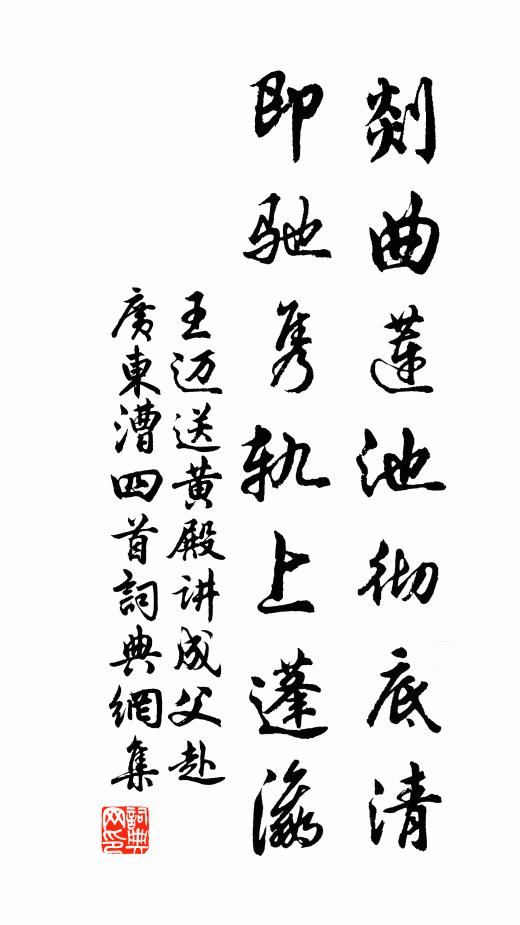 剡曲莲池彻底清
即驰隽轨上蓬瀛
王迈送黄殿讲成父赴
廣東漕四首詞典網集
詞典
网印